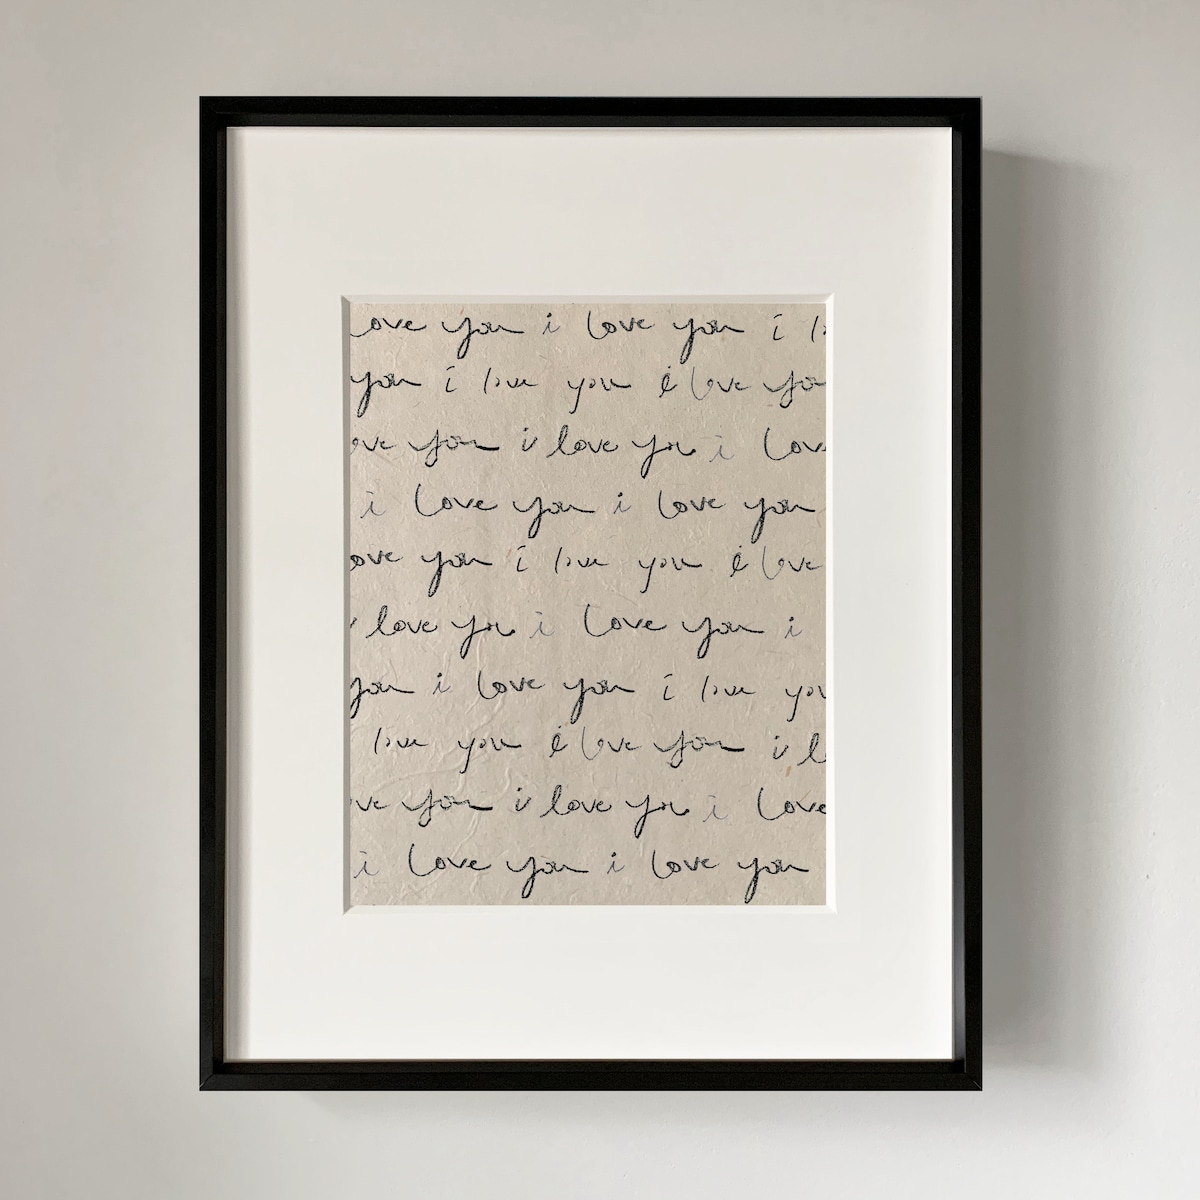 love you i love you i lo
you i love you i love you
ove you i love you i love
i love you i love you
ove you i love you i love
love you i love you i
you i love you i love you
love you i love you i l
ve you i love you i love
i love you i love you